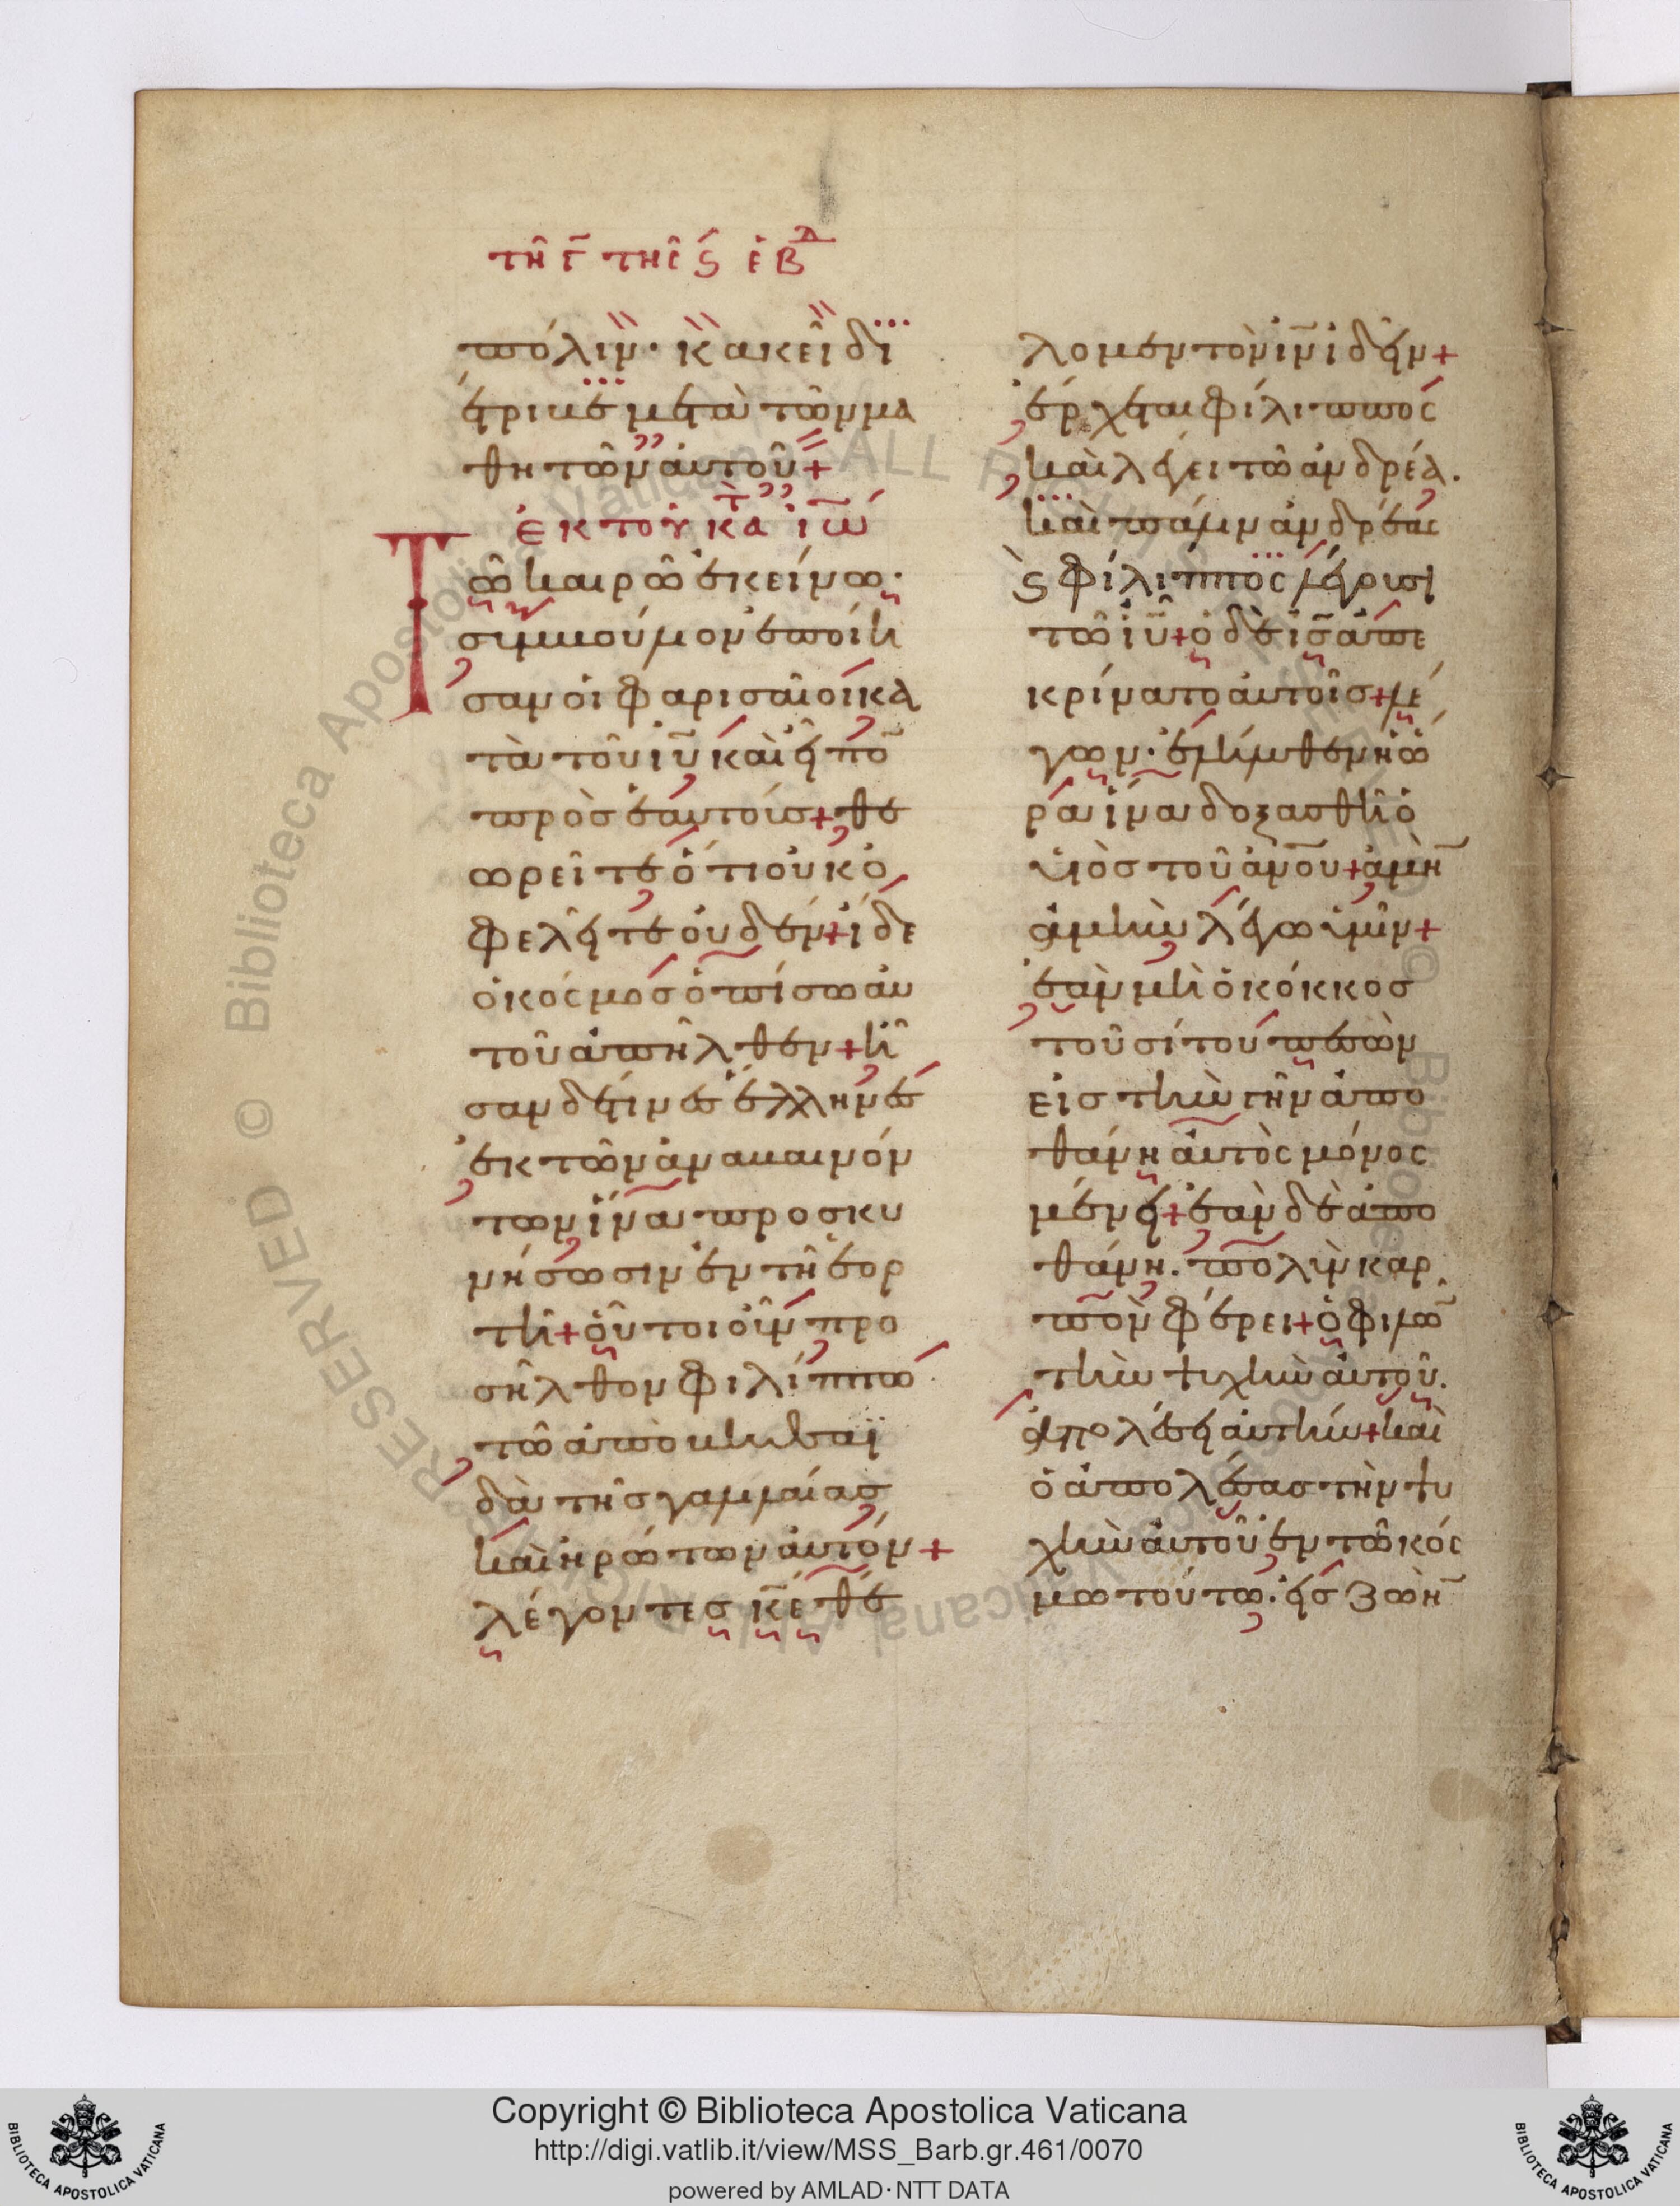 τῆ γ̄ τῆς ϛ́ ἑβδ
πόλιν· κἀκεῖ δι
έτριβε μετὰ τῶν μα
θητῶν αὐτοῦ+
ἐκ τοῦ κατὰ ἰω̅
Τῶ καιρῶ ἐκείνω·
συμβούλιον ἐποίη
σαν οἱ φαρισαῖοι κα
τὰ τοῦ ἰυ̅ καὶ εἶπο̅
πρὸσ ἑαυτούσ+ θε
ωρεῖτε ὅτι οὐκ ὠ
φελεῖτε οὐδέν+ ἴδε
ὁ κόσμοσ ὀπίσω αὐ
τοῦ ἀπῆλθεν+ ἦ
σαν δέ τινεσ ἕλληνεσ
ἐκ τῶν ἀναβαινόν
των ἵνα προσκυ
νήσωσιν ἐν τῆ ἑορ
τῆ+ οὗτοι οὖν προ
σῆλθον φιλίππω
τῶ ἀπὸ βηθσαϊ
δὰ τῆσ γαλιλαίασ
καὶ ἠρώτων αὐτόν+
λέγοντεσ κ̅ε̅ θέ
λομεν τὸν ἰν̅ ἰδεῖν+
ἔρχεται φίλιππος
καὶ λέγει τῶ ἀνδρέα.
καὶ πάλιν ἀνδρέας
ϛ̀ φίλιππος λέγουσι
τῶ ἰυ̅+ ὁ δὲ ἰσ̅ ἀπε
κρίνατο αὐτοῖσ+ λέ
γων· ἐλήλυθεν ἡ ὥ
ρα ἵνα δοξασθῆ ὁ
υἱὸσ τοῦ ἀν̅ου+ ἀμὴ̅
ἀμὴν λέγω ὑμῖν+
ἐὰν μὴ ὁ κόκκοσ
τοῦ σίτου πεσὼν
εἰσ τὴν γῆν ἀπο
θάνη αὐτὸς μόνος
μένει+ ἐὰν δὲ ἀπο
θάνη. πολὺν καρ
πὸν φέρει+ ὁ φιλῶ̅
τὴν ψυχὴν αὐτοῦ.
ἀπολέσει αὐτήν+ καὶ
ὁ ἀπολέσασ τὴν ψυ
χὴν αὐτοῦ ἐν τῶ κόσ
μω τούτω. εἰσ ζωὴ̅
Copyright © Biblioteca Apostolica Vaticana
http://digi.vatlib.it/view/MSS_Barb.gr.461/0070
powered by AMLAD·NTT DATA